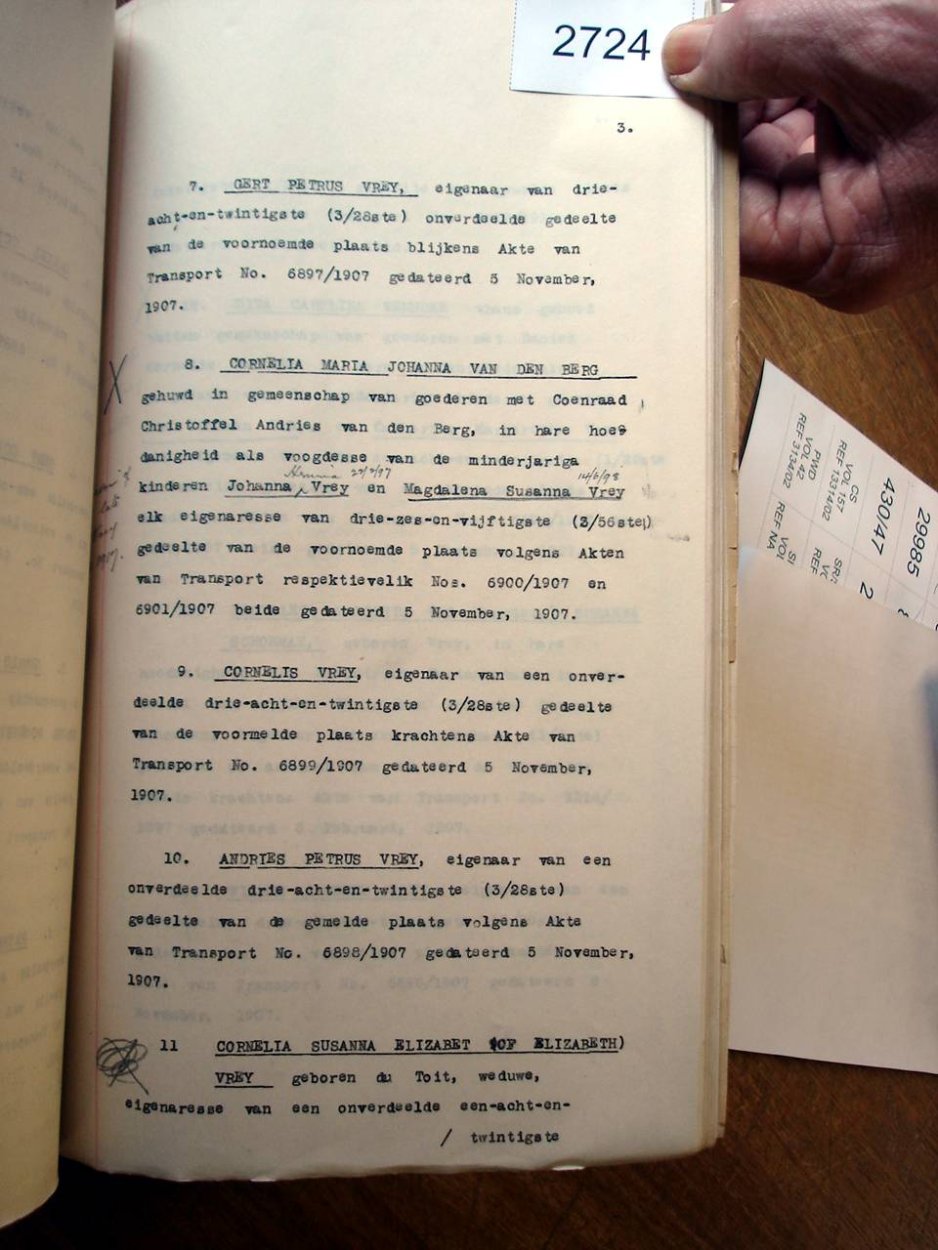 2724
3.
7. GERT PETRUS VREY, eigenaar van drie-
acht-en-twintigste (3/28ste) onverdeelde gedeelte
van de voornoemde plaats blijkens Akte van
Transport No. 6897/1907 gedateerd 5 November,
1907.
8. CORNELIA MARIA JOHANNA VAN DEN BERG
gehuwd in gemeenschap van goederen met Coenraad
Christoffel Andries van den Berg, in hare hoe
danigheid als voogdesse van de minderjariga
14/6/98
kinderen Johanna Vrey en Magdalena Susanna Vrey
elk eigenaresse van drie-zes-en-vijftigste (3/56ste)
gedeelte van de voornoemde plaats volgens Akten
van Transport respektievelik Nos. 6900/1907 en
6901/1907 beide gedateerd 5 November, 1907.
9. CORNELIS VREY, eigenaar van een onver-
deelde drie-acht-en-twintigste (3/28ste) gedeelte
van de voormelde plaats krachtens Akte van
Transport No. 6899/1907 gedateerd 5 November,
1907.
10. ANDRIES PETRUS VREY, eigenaar van een
onverdeelde drie-acht-en-twintigste (3/28ste)
gedeelte van de gemelde plaats volgens Akte
van Transport No. 6898/1907 gedateerd 5 November,
1907.
11 CORNELIA SUSANNA ELIZABET (OF ELIZABETH)
VREY geboren du Toit, weduwe,
eigenaresse van een onverdeelde een-acht-en-
/ twintigste
29985
430/47 2
CS
VOL 157
REF 13314/02
PWD
VOL 42
REF 3134/02
SR/
VC
REF
SI
VOL
REF NA